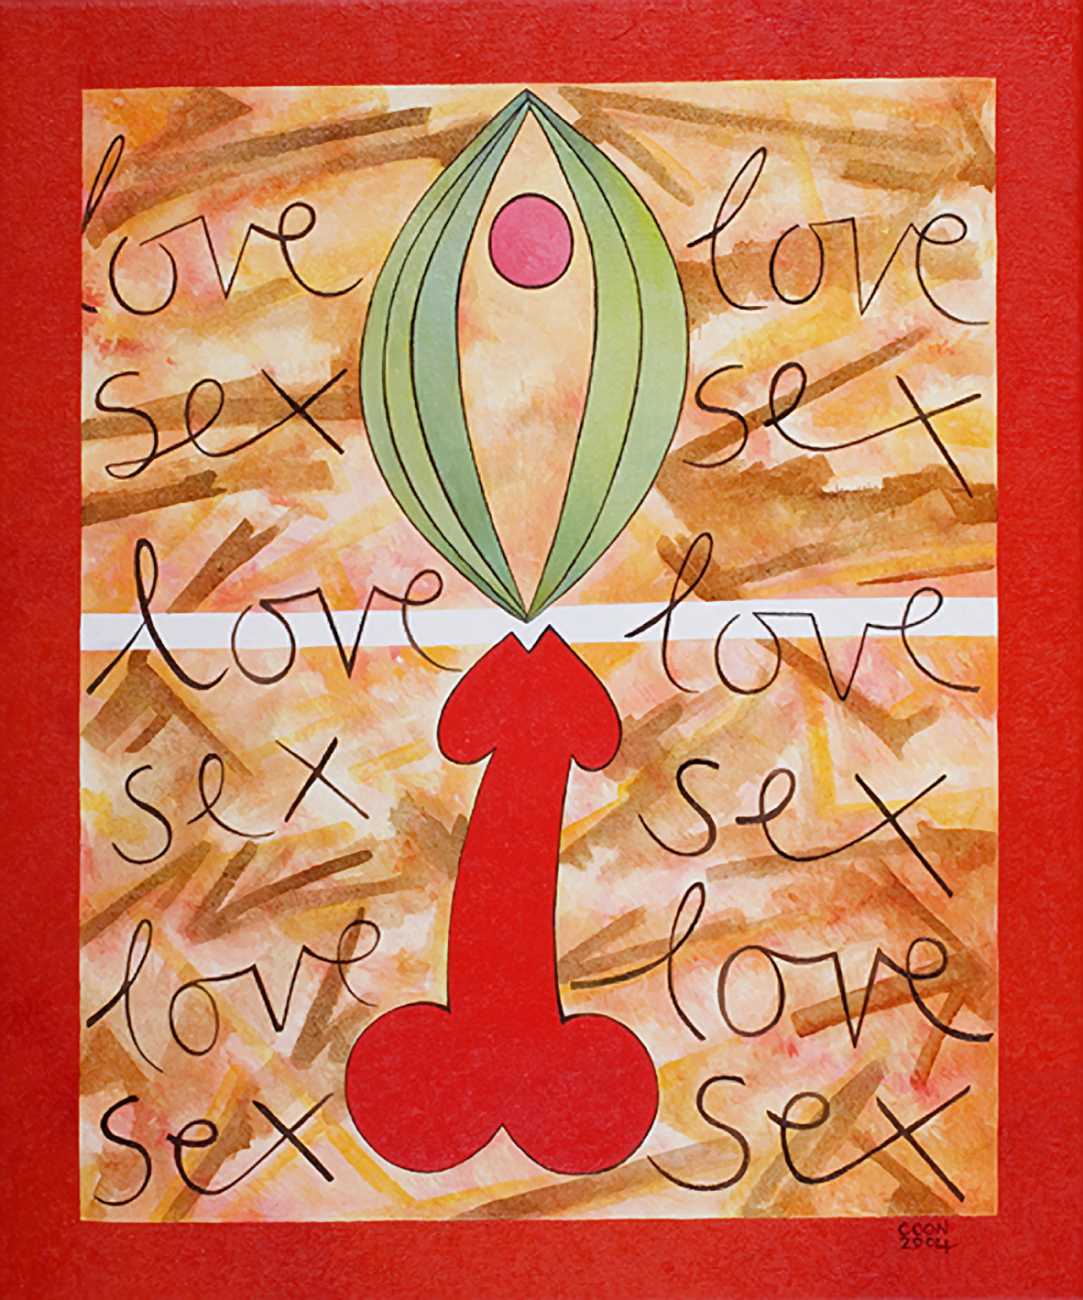 love love
sex sex
love love
sex sex
love love
sex sex
COON
2004